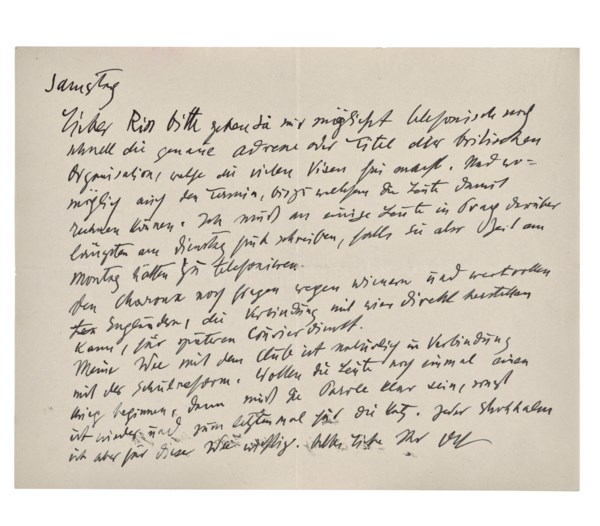 Samstag
Lieber Rio bitte geben Sie mir möglichst telefonisch noch
schnell die genaue Adresse oder Titel der britischen
Organisation, welche die vielen Visen frei macht. Und wo-
möglich auch den Termin, bis zu welchem die Leute damit
rechnen können. Ich muß an einige Leute in Prag darüber
längstens am Dienstag früh schreiben, falls Sie also Zeit am
Montag hätten zu telefonieren.
Den Charoux noch fragen wegen Wienern und wertvollen
Engländern, die Verbindung mit Wien direkt herstellen
kann, für späteren Courierdienst.
Meine Idee mit dem Club ist natürlich in Verbindung
mit der Schulreform. Wollen die Leute noch einmal einen
Krieg beginnen, dann muß die Parole klar sein, sonst
ist wieder und zum letztenmal für die Katz. Jeder Strohhalm
ist aber für diese Idee wichtig. Alles Liebe Ihr OK